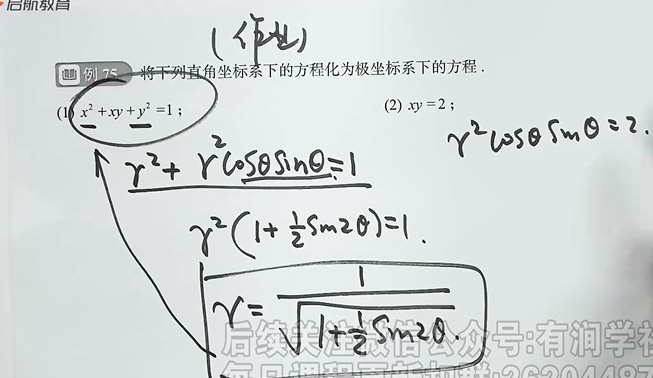 启航教育
(作业)
例 75 将下列直角坐标系下的方程化为极坐标系下的方程.
(1) x² + xy + y² = 1; (2) xy = 2;
r² cosθ sinθ = 2.
r² + r² cosθ sinθ = 1
r² (1 + ½ sin2θ) = 1.
r = 1 / √(1 + ½ sin2θ).
后续关注微信公众号:有润学社